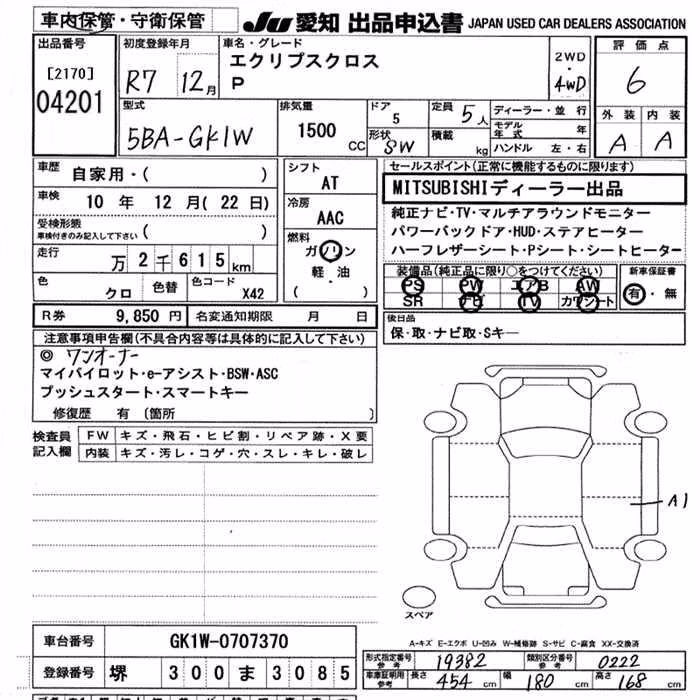 車内保管・守衛保管
JU 愛知 出品申込書 JAPAN USED CAR DEALERS ASSOCIATION
出品番号
[2170]
04201
初度登録年月
R7 12月
車名・グレード
エクリプスクロス
P
2WD
・
4WD
評価点
6
外装 内装
A A
型式
5BA-GK1W
排気量
1500 CC
ドア
5
形状
SW
定員
5人
積載
kg
ディーラー・並行
モデル年式 年
ハンドル 左・右
車歴
自家用・( )
車検
10 年 12 月(22 日)
受検形態
車検付きのみ記入して下さい ( )
走行
万 2 千 6 1 5 km
色
クロ
色替
色コード
X42
シフト
AT
冷房
AAC
燃料
ガソリン
軽・油
( )
セールスポイント(正常に機能するものに限ります)
MITSUBISHIディーラー出品
純正ナビ・TV・マルチアラウンドモニター
パワーバックドア・HUD・ステアヒーター
ハーフレザーシート・Pシート・シートヒーター
装備品(純正品に限り○をつけてください)
PS PW エアB AW
SR ナビ TV カワシート
新車保証書
有・無
R券 9,850 円 名変通知期限 月 日
後日品
保・取・ナビ取・Sキー
注意事項申告欄(不具合内容等は具体的に記入して下さい)
◎ ワンオーナー
マイパイロット・e-アシスト・BSW・ASC
プッシュスタート・スマートキー
修復歴 有 (箇所 )
検査員記入欄
FW キズ・飛石・ヒビ割・リペア跡・X要
内装 キズ・汚レ・コゲ・穴・スレ・キレ・破レ
A1
スペア
A-キズ E-エクボ U-凹み W-補修跡 S-サビ C-腐食 XX-交換済
車台番号 GK1W-0707370
登録番号 堺 300 ま 3085
形式指定番号 参考 19382 類別区分番号 参考 0222
車庫証明用 参考 長さ 454 cm 幅 180 cm 高さ 168 cm